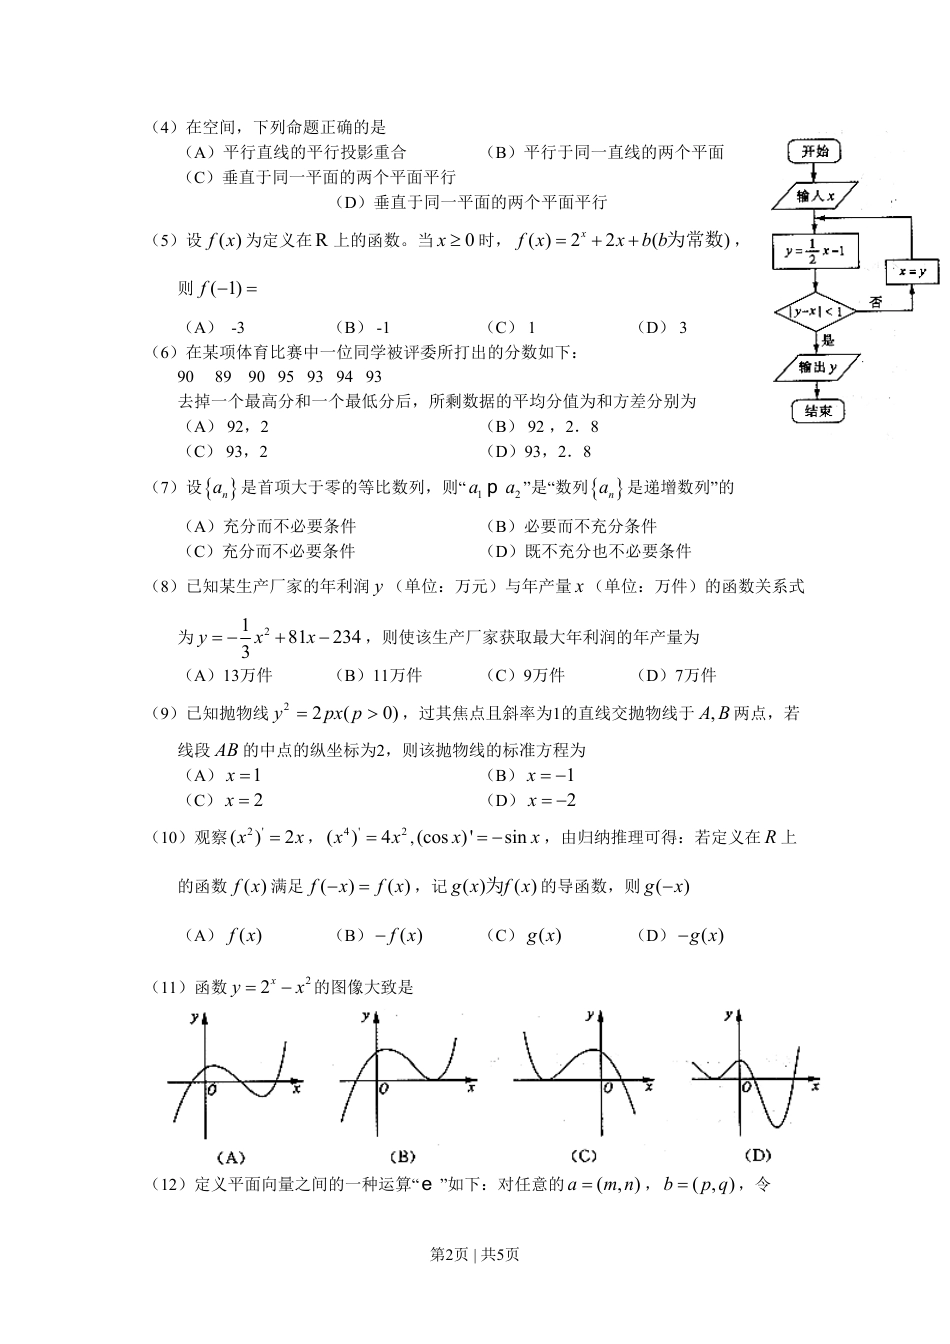 （4）在空间，下列命题正确的是
（A）平行直线的平行投影重合 （B）平行于同一直线的两个平面
（C）垂直于同一平面的两个平面平行
（D）垂直于同一平面的两个平面平行
（5）设 f(x) 为定义在 R 上的函数。当 x ≥ 0 时， f(x) = 2ˣ + 2x + b(b为常数)，
则 f(−1) =
（A） -3 （B） -1 （C） 1 （D） 3
（6）在某项体育比赛中一位同学被评委所打出的分数如下：
90 89 90 95 93 94 93
去掉一个最高分和一个最低分后，所剩数据的平均分值为和方差分别为
（A） 92，2 （B） 92 ，2．8
（C） 93，2 （D）93，2．8
开始
输入 x
y=1/2 x-1
x=y
|y-x|<1
否
是
输出 y
结束
（7）设{aₙ}是首项大于零的等比数列，则“a₁ p a₂”是“数列{aₙ}是递增数列”的
（A）充分而不必要条件 （B）必要而不充分条件
（C）充分而不必要条件 （D）既不充分也不必要条件
（8）已知某生产厂家的年利润 y （单位：万元）与年产量 x （单位：万件）的函数关系式
为 y = −1/3 x² + 81x − 234，则使该生产厂家获取最大年利润的年产量为
（A）13万件 （B）11万件 （C）9万件 （D）7万件
（9）已知抛物线 y² = 2px(p > 0)，过其焦点且斜率为1的直线交抛物线于 A, B 两点，若
线段 AB 的中点的纵坐标为2，则该抛物线的标准方程为
（A） x = 1 （B） x = −1
（C） x = 2 （D） x = −2
（10）观察 (x²)' = 2x， (x⁴)' = 4x², (cos x)' = − sin x，由归纳推理可得：若定义在 R 上
的函数 f(x) 满足 f(−x) = f(x)，记 g(x)为f(x) 的导函数，则 g(−x)
（A） f(x) （B） −f(x) （C） g(x) （D） −g(x)
（11）函数 y = 2ˣ − x² 的图像大致是
y y y y
O x O x O x O x
(A) (B) (C) (D)
（12）定义平面向量之间的一种运算“e ”如下：对任意的 a = (m, n)， b = (p, q)，令
第2页 | 共5页